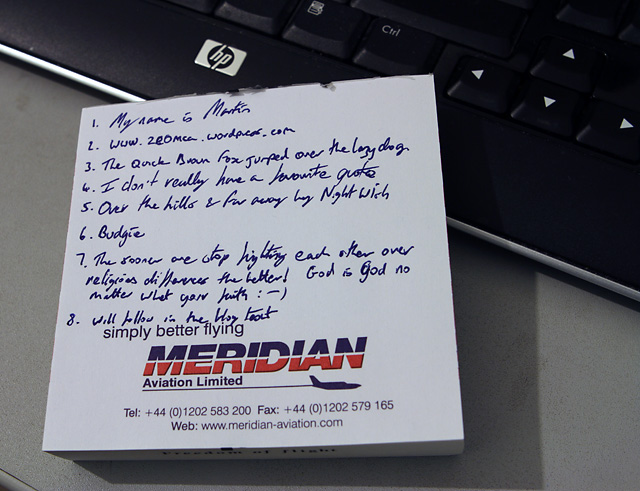 hp
Ctrl
1. My name is Martin
2. www.zeomca.wordpress.com
3. The Quick Brown Fox jumped over the lazy dog.
4. I don't really have a favourite quote
5. Over the hills & far away by Night Wish
6. Budgie
7. The sooner we stop fighting each other over
religious differences the better! God is God no
matter what your faith :-)
8. will follow in the blog
simply better flying
MERIDIAN
Aviation Limited
Tel: +44 (0)1202 583 200 Fax: +44 (0)1202 579 165
Web: www.meridian-aviation.com
Freedom of flight